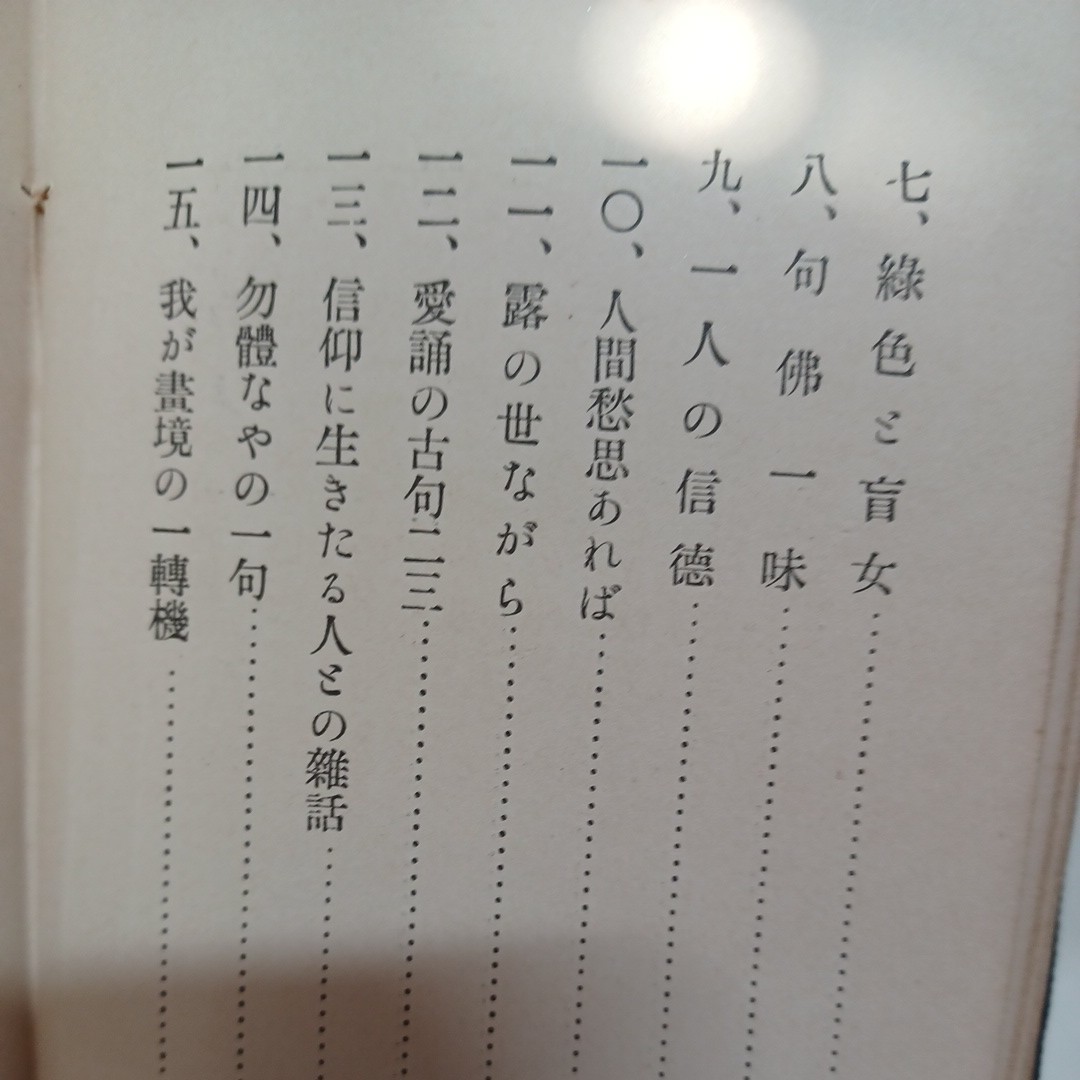 七、綠色と盲女……………………
八、句佛一味……………………
九、一人の信德……………………
一〇、人間愁思あれば……………………
一一、露の世ながら……………………
一二、愛誦の古句二三……………………
一三、信仰に生きたる人との雜話……………………
一四、勿體なやの一句……………………
一五、我が畫境の一轉機……………………